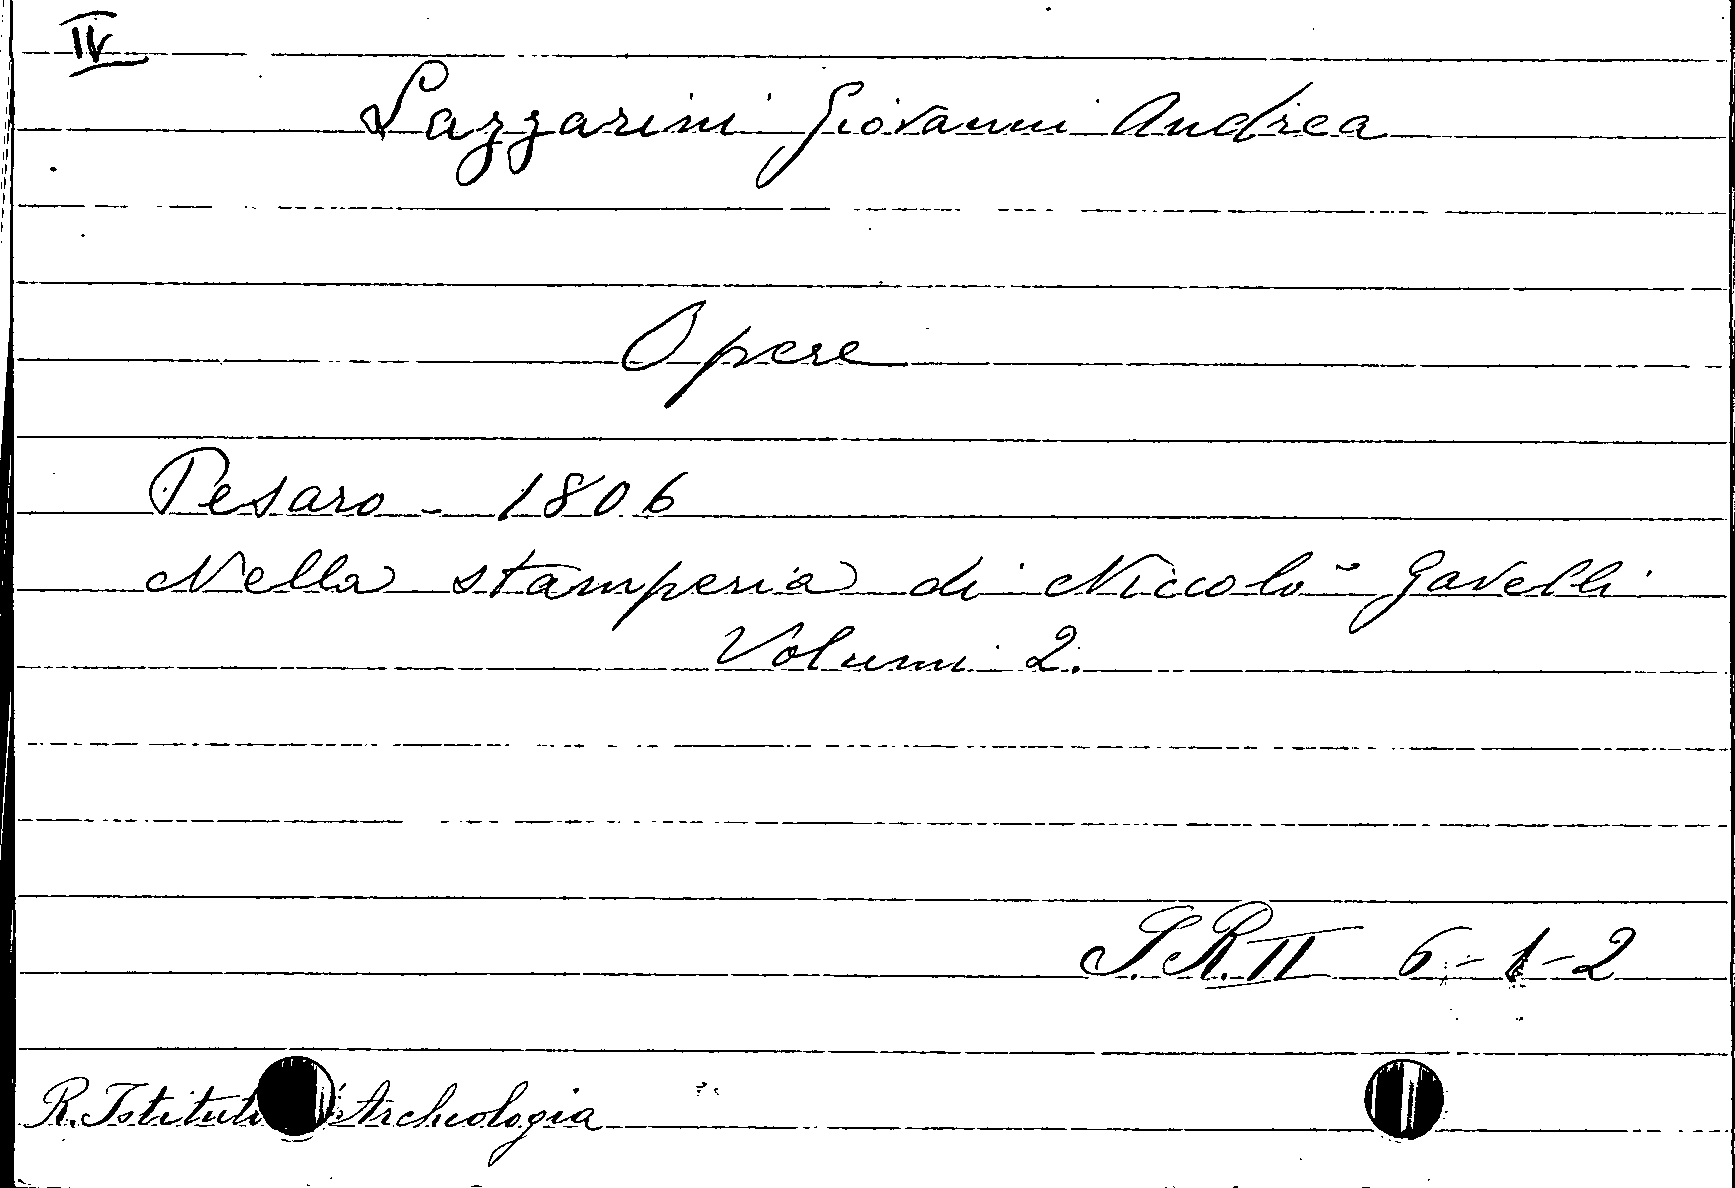 IV
Lazzarini Giovanni Andrea
Opere
Pesaro - 1806
Nella stamperia di Niccolò Gavelli
Volumi 2.
S.R. II 6-1-2
R. Istituto Archeologia